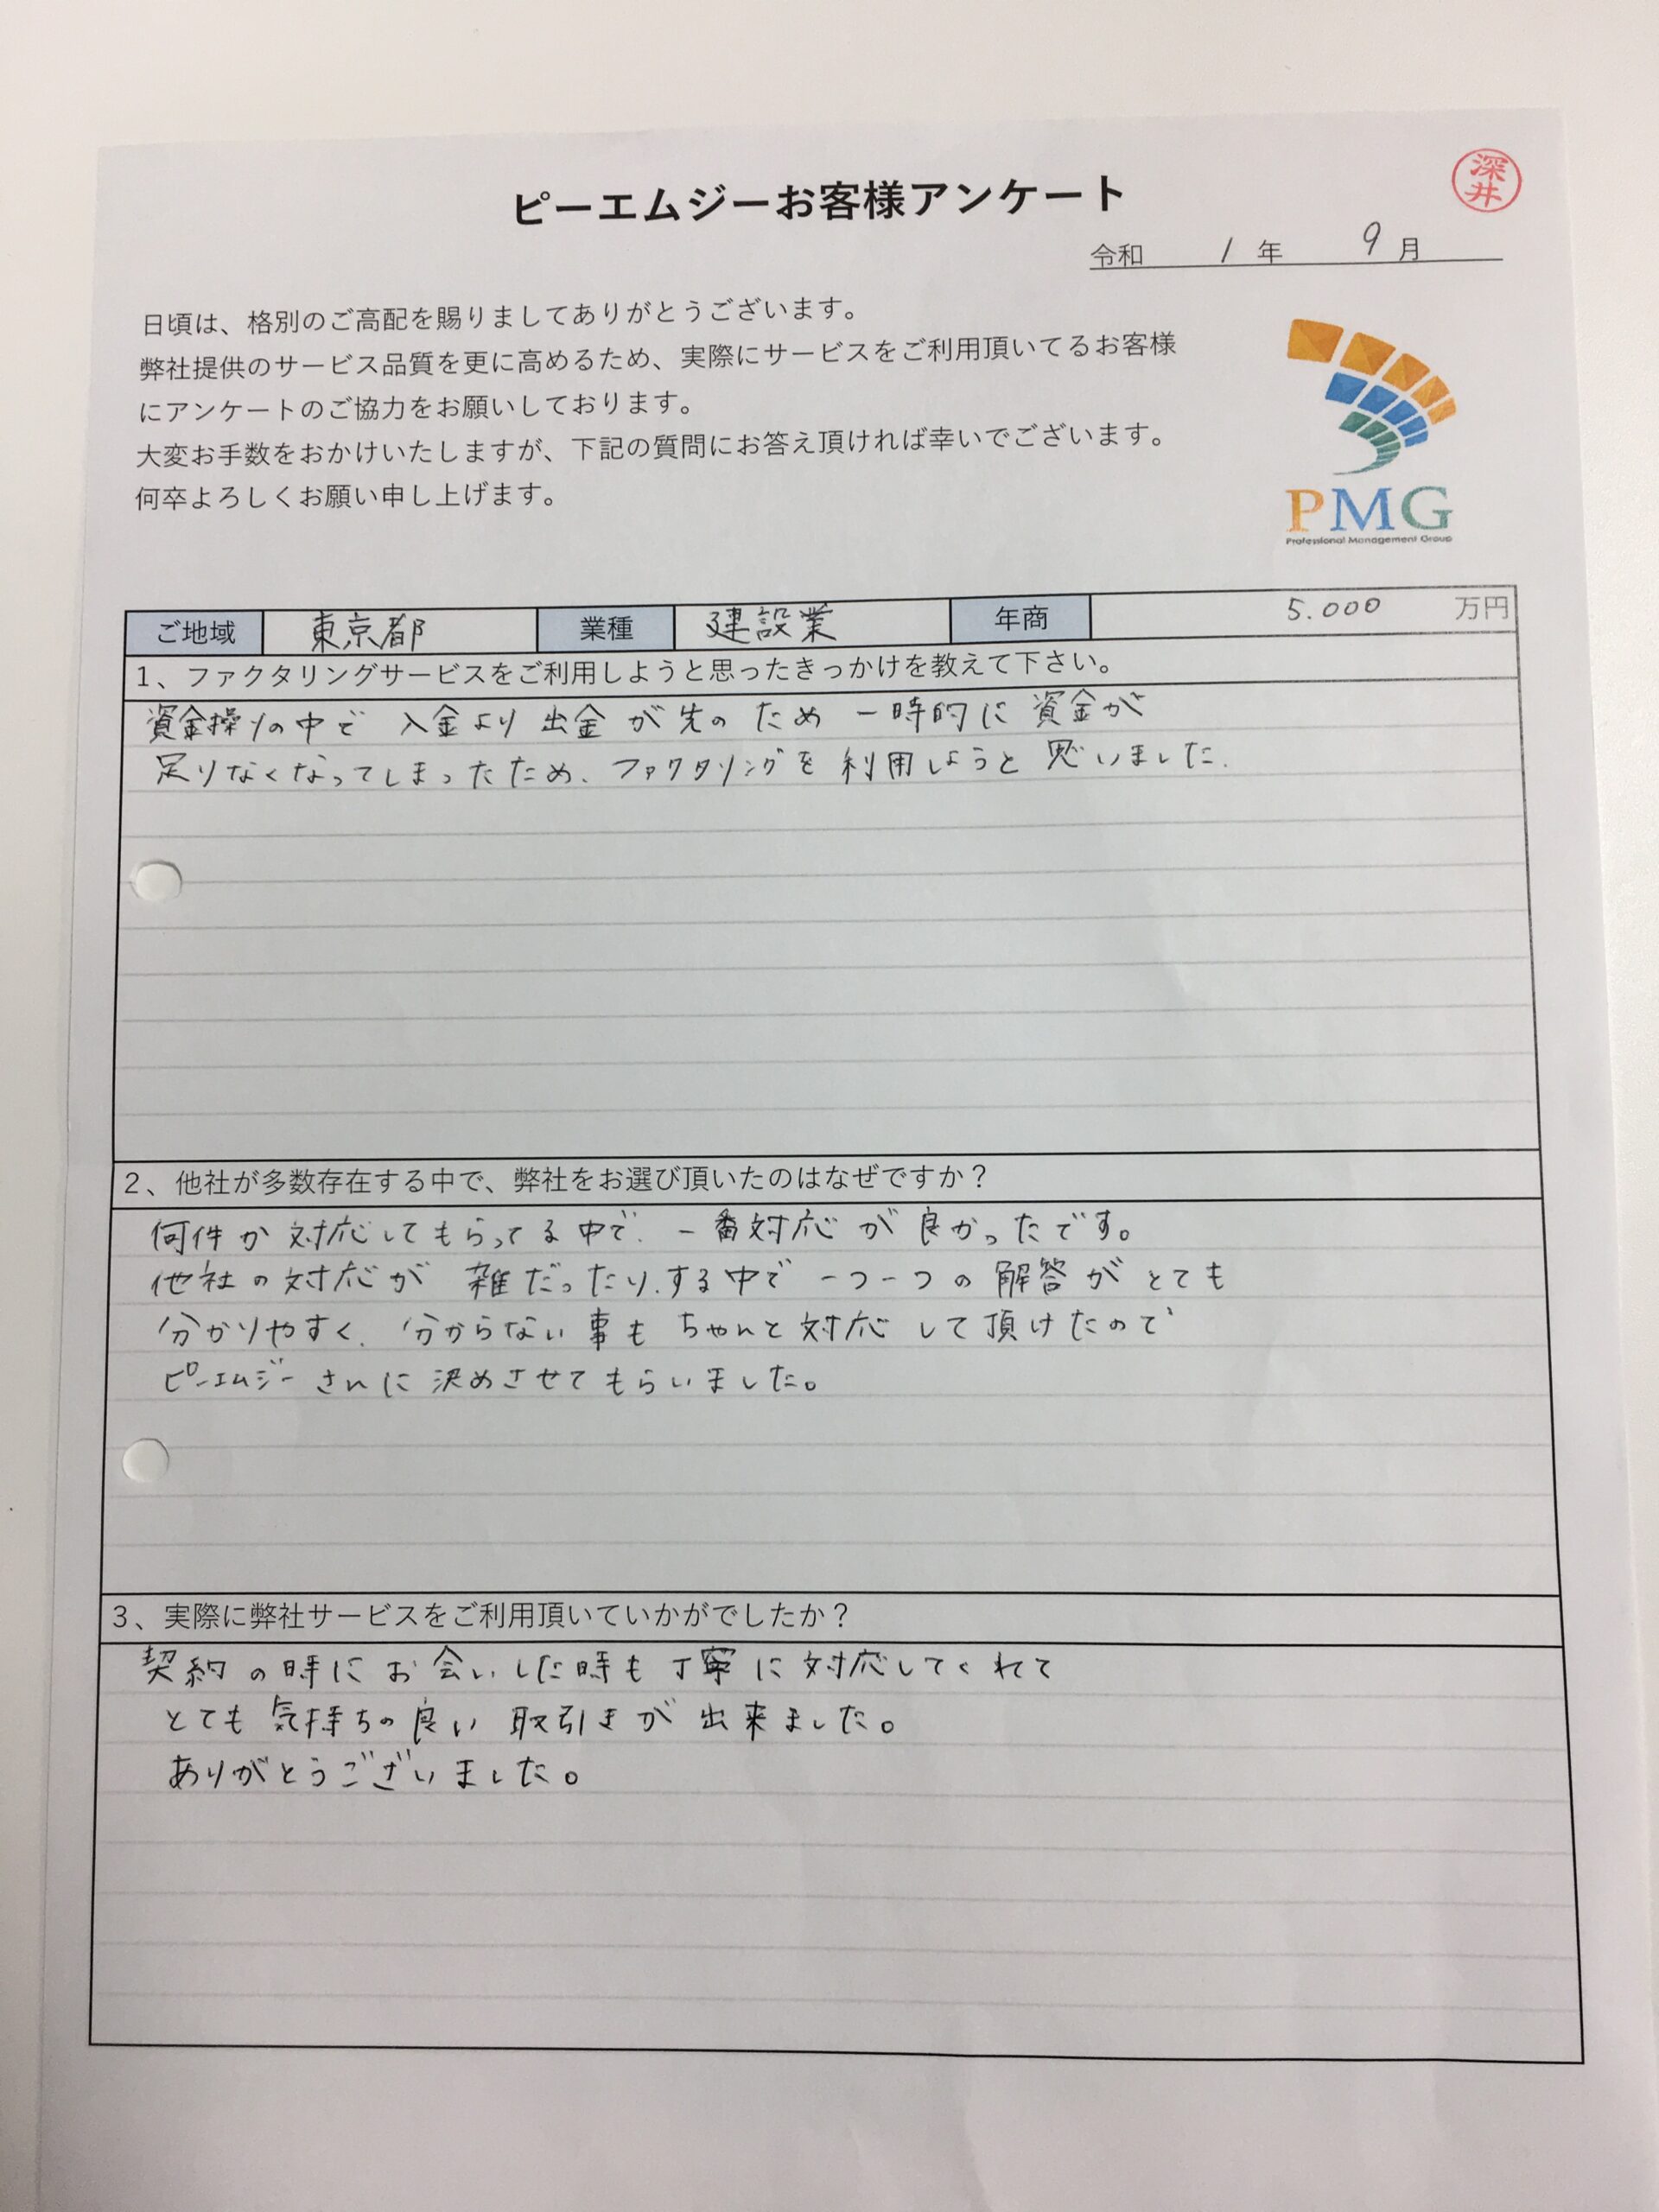 深井
ピーエムジーお客様アンケート
令和 1 年 9 月
日頃は、格別のご高配を賜りましてありがとうございます。
弊社提供のサービス品質を更に高めるため、実際にサービスをご利用頂いてるお客様
にアンケートのご協力をお願いしております。
大変お手数をおかけいたしますが、下記の質問にお答え頂ければ幸いでございます。
何卒よろしくお願い申し上げます。
PMG
Professional Management Group
ご地域 東京都 業種 建設業 年商 5.000 万円
1、ファクタリングサービスをご利用しようと思ったきっかけを教えて下さい。
資金操りの中で 入金より 出金 が 先の ため 一時的に 資金が
足りなくなってしまったため、ファクタリングを 利用しようと 思いました.
2、他社が多数存在する中で、弊社をお選び頂いたのはなぜですか？
何件か 対応してもらってる 中で、一番対応 が 良かったです。
他社の対応が 雑だったり、する中で 一つ一つの 解答が とても
分かりやすく、分からない事も ちゃんと 対応 して 頂けたので
ピーエムジーさんに 決めさせてもらいました。
3、実際に弊社サービスをご利用頂いていかがでしたか？
契約の時に お会いした時も 丁寧に 対応してくれて
とても 気持ちの良い 取引きが 出来ました。
ありがとうございました。